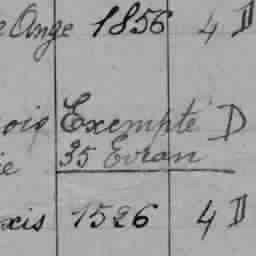 e Ange 1856 4 D
ois Exempté D
ie 35 Evran
xis 1526 4 D